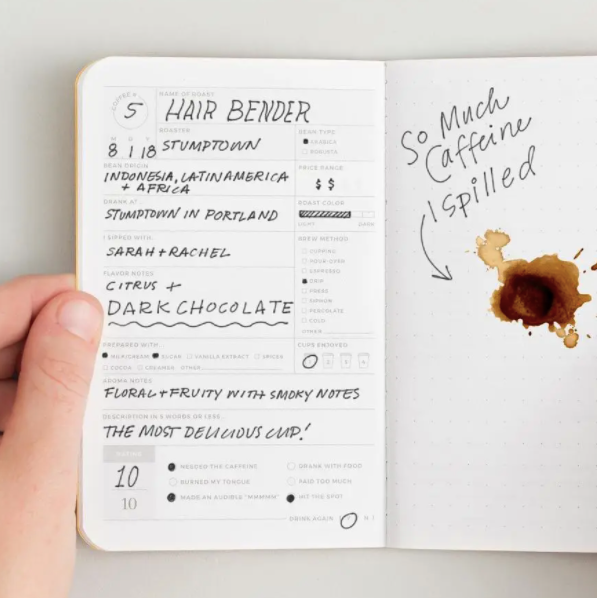 COFFEE #
5
NAME OF ROAST
HAIR BENDER
8 1 18
ROASTER
STUMPTOWN
BEAN TYPE
ARABICA
ROBUSTA
BEAN ORIGIN
INDONESIA, LATIN AMERICA
+ AFRICA
PRICE RANGE
$ $
DRANK AT
STUMPTOWN IN PORTLAND
ROAST COLOR
LIGHT DARK
I SIPPED WITH
SARAH + RACHEL
BREW METHOD
CUPPING
POUR-OVER
ESPRESSO
DRIP
PRESS
SIPHON
PERCOLATE
COLD
OTHER
FLAVOR NOTES
CITRUS +
DARK CHOCOLATE
PREPARED WITH
MILK/CREAM SUGAR VANILLA EXTRACT SPICES
COCOA CREAMER OTHER
CUPS ENJOYED
2 3 4
AROMA NOTES
FLORAL + FRUITY WITH SMOKY NOTES
DESCRIPTION IN 5 WORDS OR LESS
THE MOST DELICIOUS CUP!
RATING
10
10
NEEDED THE CAFFEINE DRANK WITH FOOD
BURNED MY TONGUE PAID TOO MUCH
MADE AN AUDIBLE "MMMMM" HIT THE SPOT
DRINK AGAIN N
So Much
Caffeine
I spilled